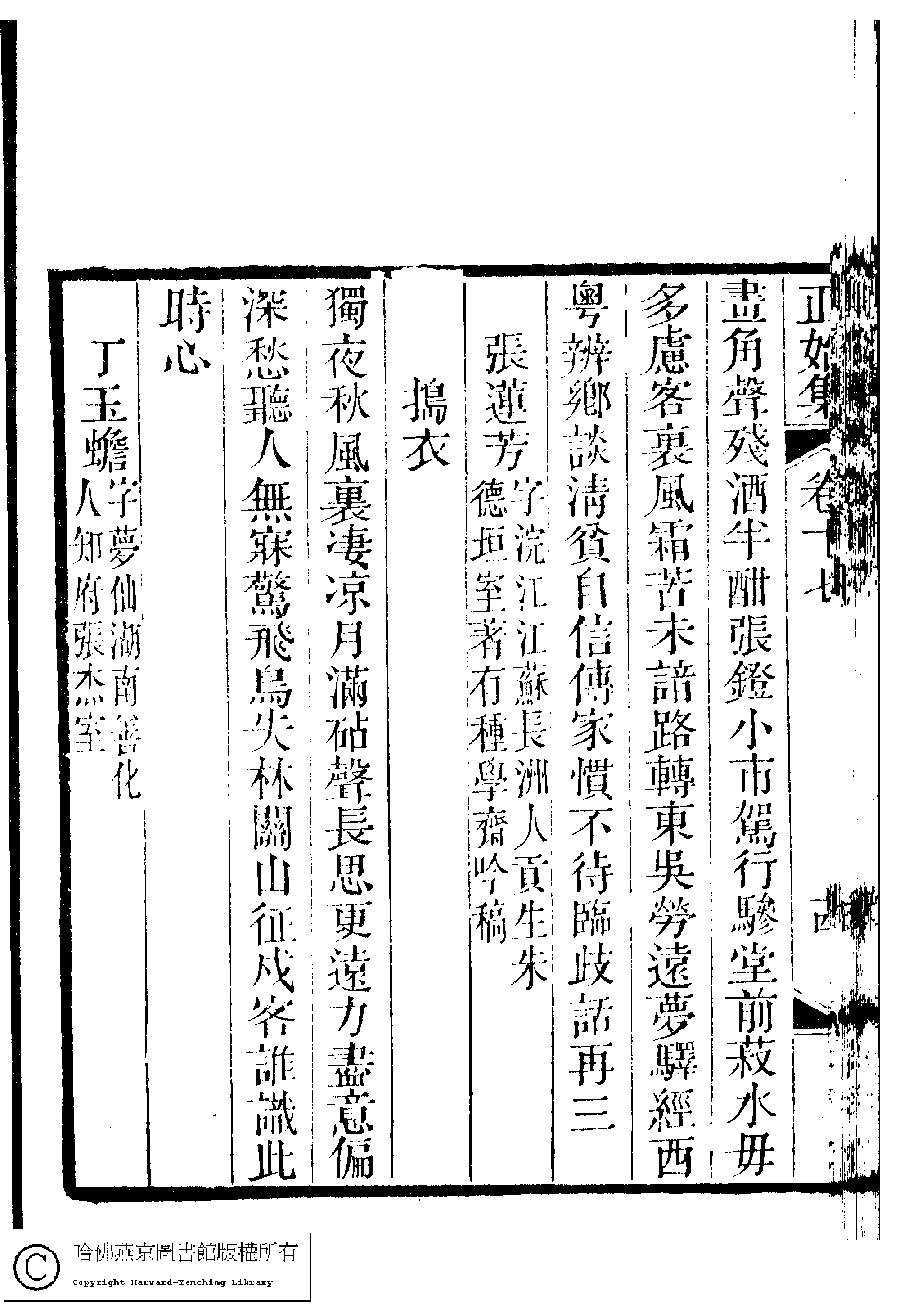 正始集 卷十七
畫角聲殘酒半酣張鐙小市駕行驂堂前菽水毋
多慮客裏風霜苦未諳路轉東吳勞遠夢驛經西
粵辨鄉談淸貧自信傳家慣不待臨歧話再三
張蓮芳字浣江江蘇長洲人貢生朱
德垣室著有種學齋吟稿
搗衣
獨夜秋風裏凄凉月滿砧聲長思更遠力盡意偏
深愁聽人無寐驚飛鳥失林關山征戍客誰識此
時心
丁玉蟾字夢仙湖南善化
人知府張杰室
哈佛燕京圖書館版權所有
Copyright Harvard-Yenching Library